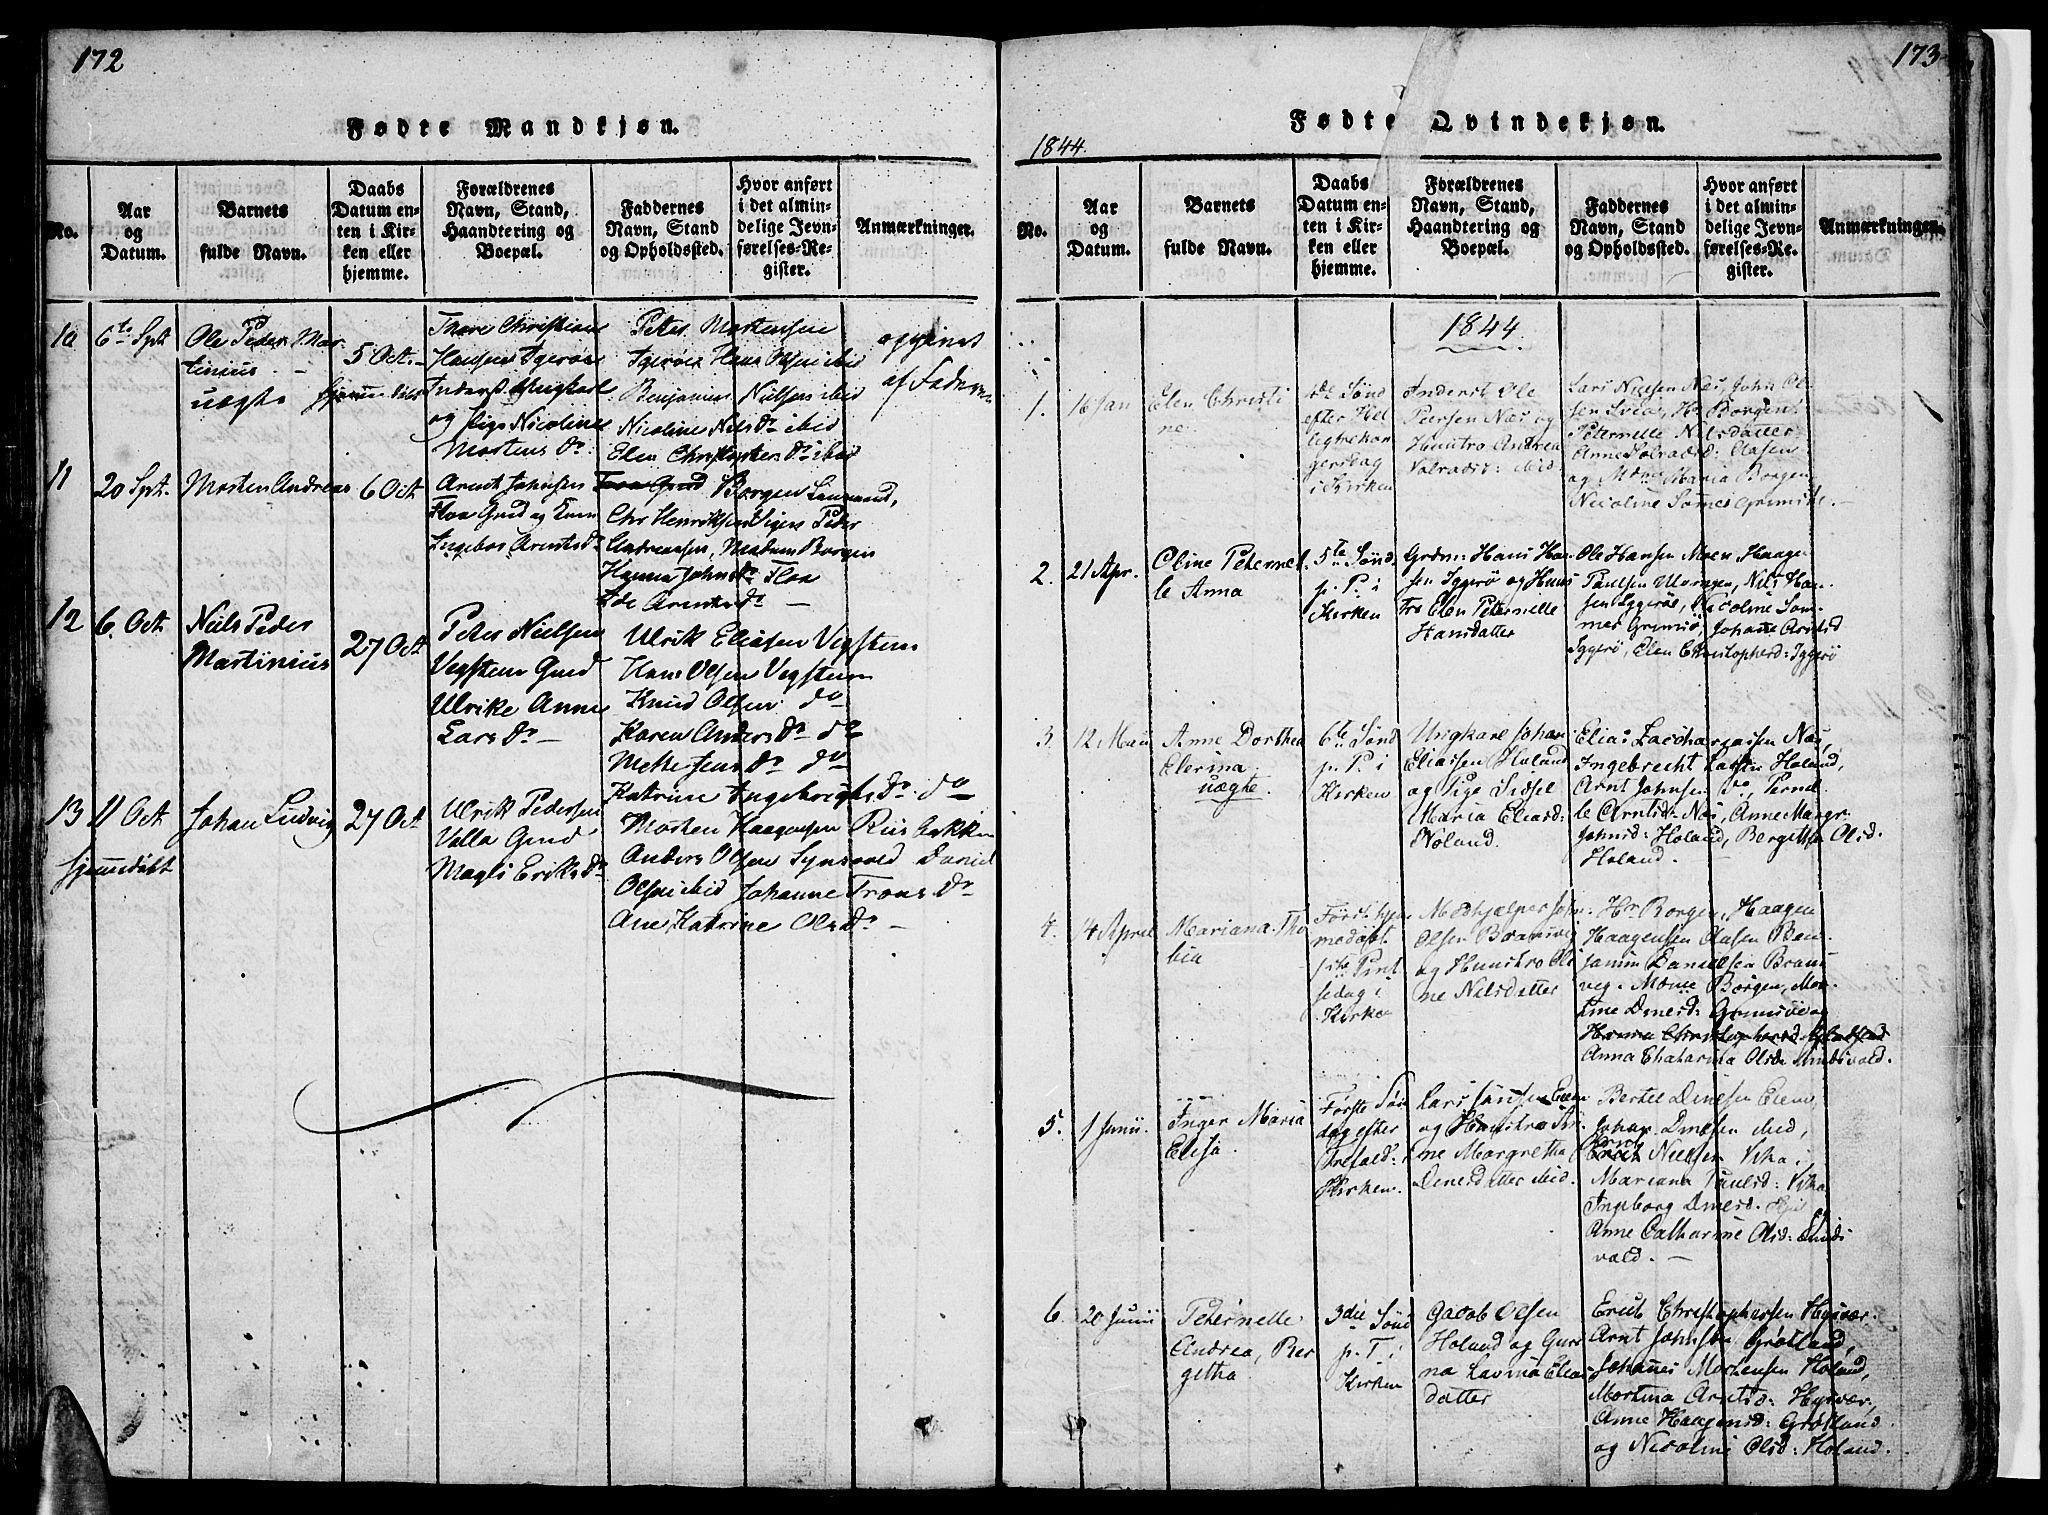 172
Fødte Mandkjøn.
No.
Aar
og
Datum.
Barnets
fulde Navn.
Daabs
Datum en-
ten i Kir-
ken eller
hjemme.
Forældrenes
Navn, Stand,
Haandtering og
Boepæl.
Faddernes
Navn, Stand
og Opholdssted.
Hvor anført
i det almin-
delige Jevn-
førelses-Re-
gister.
Anmærkninger.
10
6te Spt
Ole Peder Mar
tinius
uægte
5 Oct.
Christian
Hansen Igerøe
og Pige Nicoline
Mortens Dr.
Peter Mortensen
Igerøe Hans Olsen ibid
Benjamin Nielsen ibid
Nicoline Nils Dr ibid
Elen Christophers Dr ibid
opgivet
af Faderen
11
20 Spt.
Morten Andreas
6 Oct
Arent Johnsen
Floa Gmd og Kone
Ingebor Arnts Dr
Borgen
Chr Henriksen Peder
Andreassen, Madam Borgen
Hanna Johns Dr Floa
Arnts Dr —
12
6. Oct.
Niels Peder
Martinius
27 Oct
Peter Nielsen
Vegsteen Gmd
Ulrike Anne
Lars Dr —
Ulrik Eliasen Vegsteen
Hans Olsen Vegsteen
Knud Olsen do
Karen Anders Dr do
Mette Jens Dr do
Katrine Ingebrigts Dr do
13
11 Oct
hjemmedøbt
Johan Ludvig
27 Oct
Ulrik Pedersen
Valla Gmd
Magli Eriks Dr
Morten Haagensen
Anders Olsen
Olsen ibid Johanne Trons Dr
Ane Katrine Ols Dr —
173
1844.
Fødte Qvindekjøn.
No.
Aar
og
Datum.
Barnets
fulde Navn.
Daabs
Datum en-
ten i Kir-
ken eller
hjemme.
Forældrenes
Navn, Stand,
Haandtering og
Boepæl.
Faddernes
Navn, Stand
og Opholdssted.
Hvor anført
i det almin-
delige Jevn-
førelses-Re-
gister.
Anmærkningen.
1844
1.
16 Jan
Elen Christi
ne.
Sønd
efter Hel
ligtrekon
gersdag
i Kirken
Inderst Ole
Peersen Næs og
Huustro Andrea
Volradsd: ibid
Lars Nielsen Næs, John Ol
sen Hr Borgen
Peternelle Nilsdatter
Anne Volradsd: Olasen
og Maria Borgen
Nicoline
2.
21 Apr.
Oline Peternel
le Anna
5te Sønd
p. P. i
Kirken
Grdm: Hans Han
sen Iggerø og Huus
tro Elen Peternelle
Hansdatter
Ole Hansen Moen, Haagen
Paulsen Nils Han
sen Iggerøe, Nicoline Som
mer Grimsø, Johanne Arntsd
Iggerø, Elen Christopherd: Iggerø
3.
12 Mai
Anne Dorthea
Elerina
uægte.
6te Sønd
p. P. i
Kirken
Ungkarl Johan
Eliassen Holand
og Pige Sidsel
Maria Eliasd:
Holand.
Elias Zachariassen Næs,
Ingebrecht Larsen Holand,
Arnt Johnsen do, Pernel
le Arntsd: Næs, Anne Margr.
Johnsd: Holand, Bergitha Olsd.
Holand. —
4.
14 April
Mariana Tho
bia
Først hjem
medøbt
1ste Pint
sedag i
Kirken
Medhjælper John
Olsen Brasvig
og Huustro Oli
ne Nilsdatter
Hr Borgen, Haagen
Haagensen Olasen Ben
jamin Danielsen
Borgen, Mar
Anna Chatarina Olsd:
5.
1 Junii
Inger Maria
Elisa
Første Søn
dag efter
Trefold: i
Kirken.
Lars Jensen
og Huustro
ne Margretha
Dinesdatter ibid.
Bertel Dinesen
Johan Dinesen ibid,
Nielsen Vika,
Mariana Paulsd: Vika
Ingeborg Dinesd. og
Anne Catharine Olsd:
vold. —
6.
20 Junii
Peternelle
Andrea, Ber
getha
3die Sønd
p. T. i
Kirken
Jacob Olsen
Holand og
na Lavina Elias
datter
Erick Christophersen Hysvær
Arnt Johnsen Grøtland,
Johannes Mortensen Holand,
Martina Arntsd: Hysvær,
Anne Haagensd: Grøtland
og Nicoline Olsd: Holand.